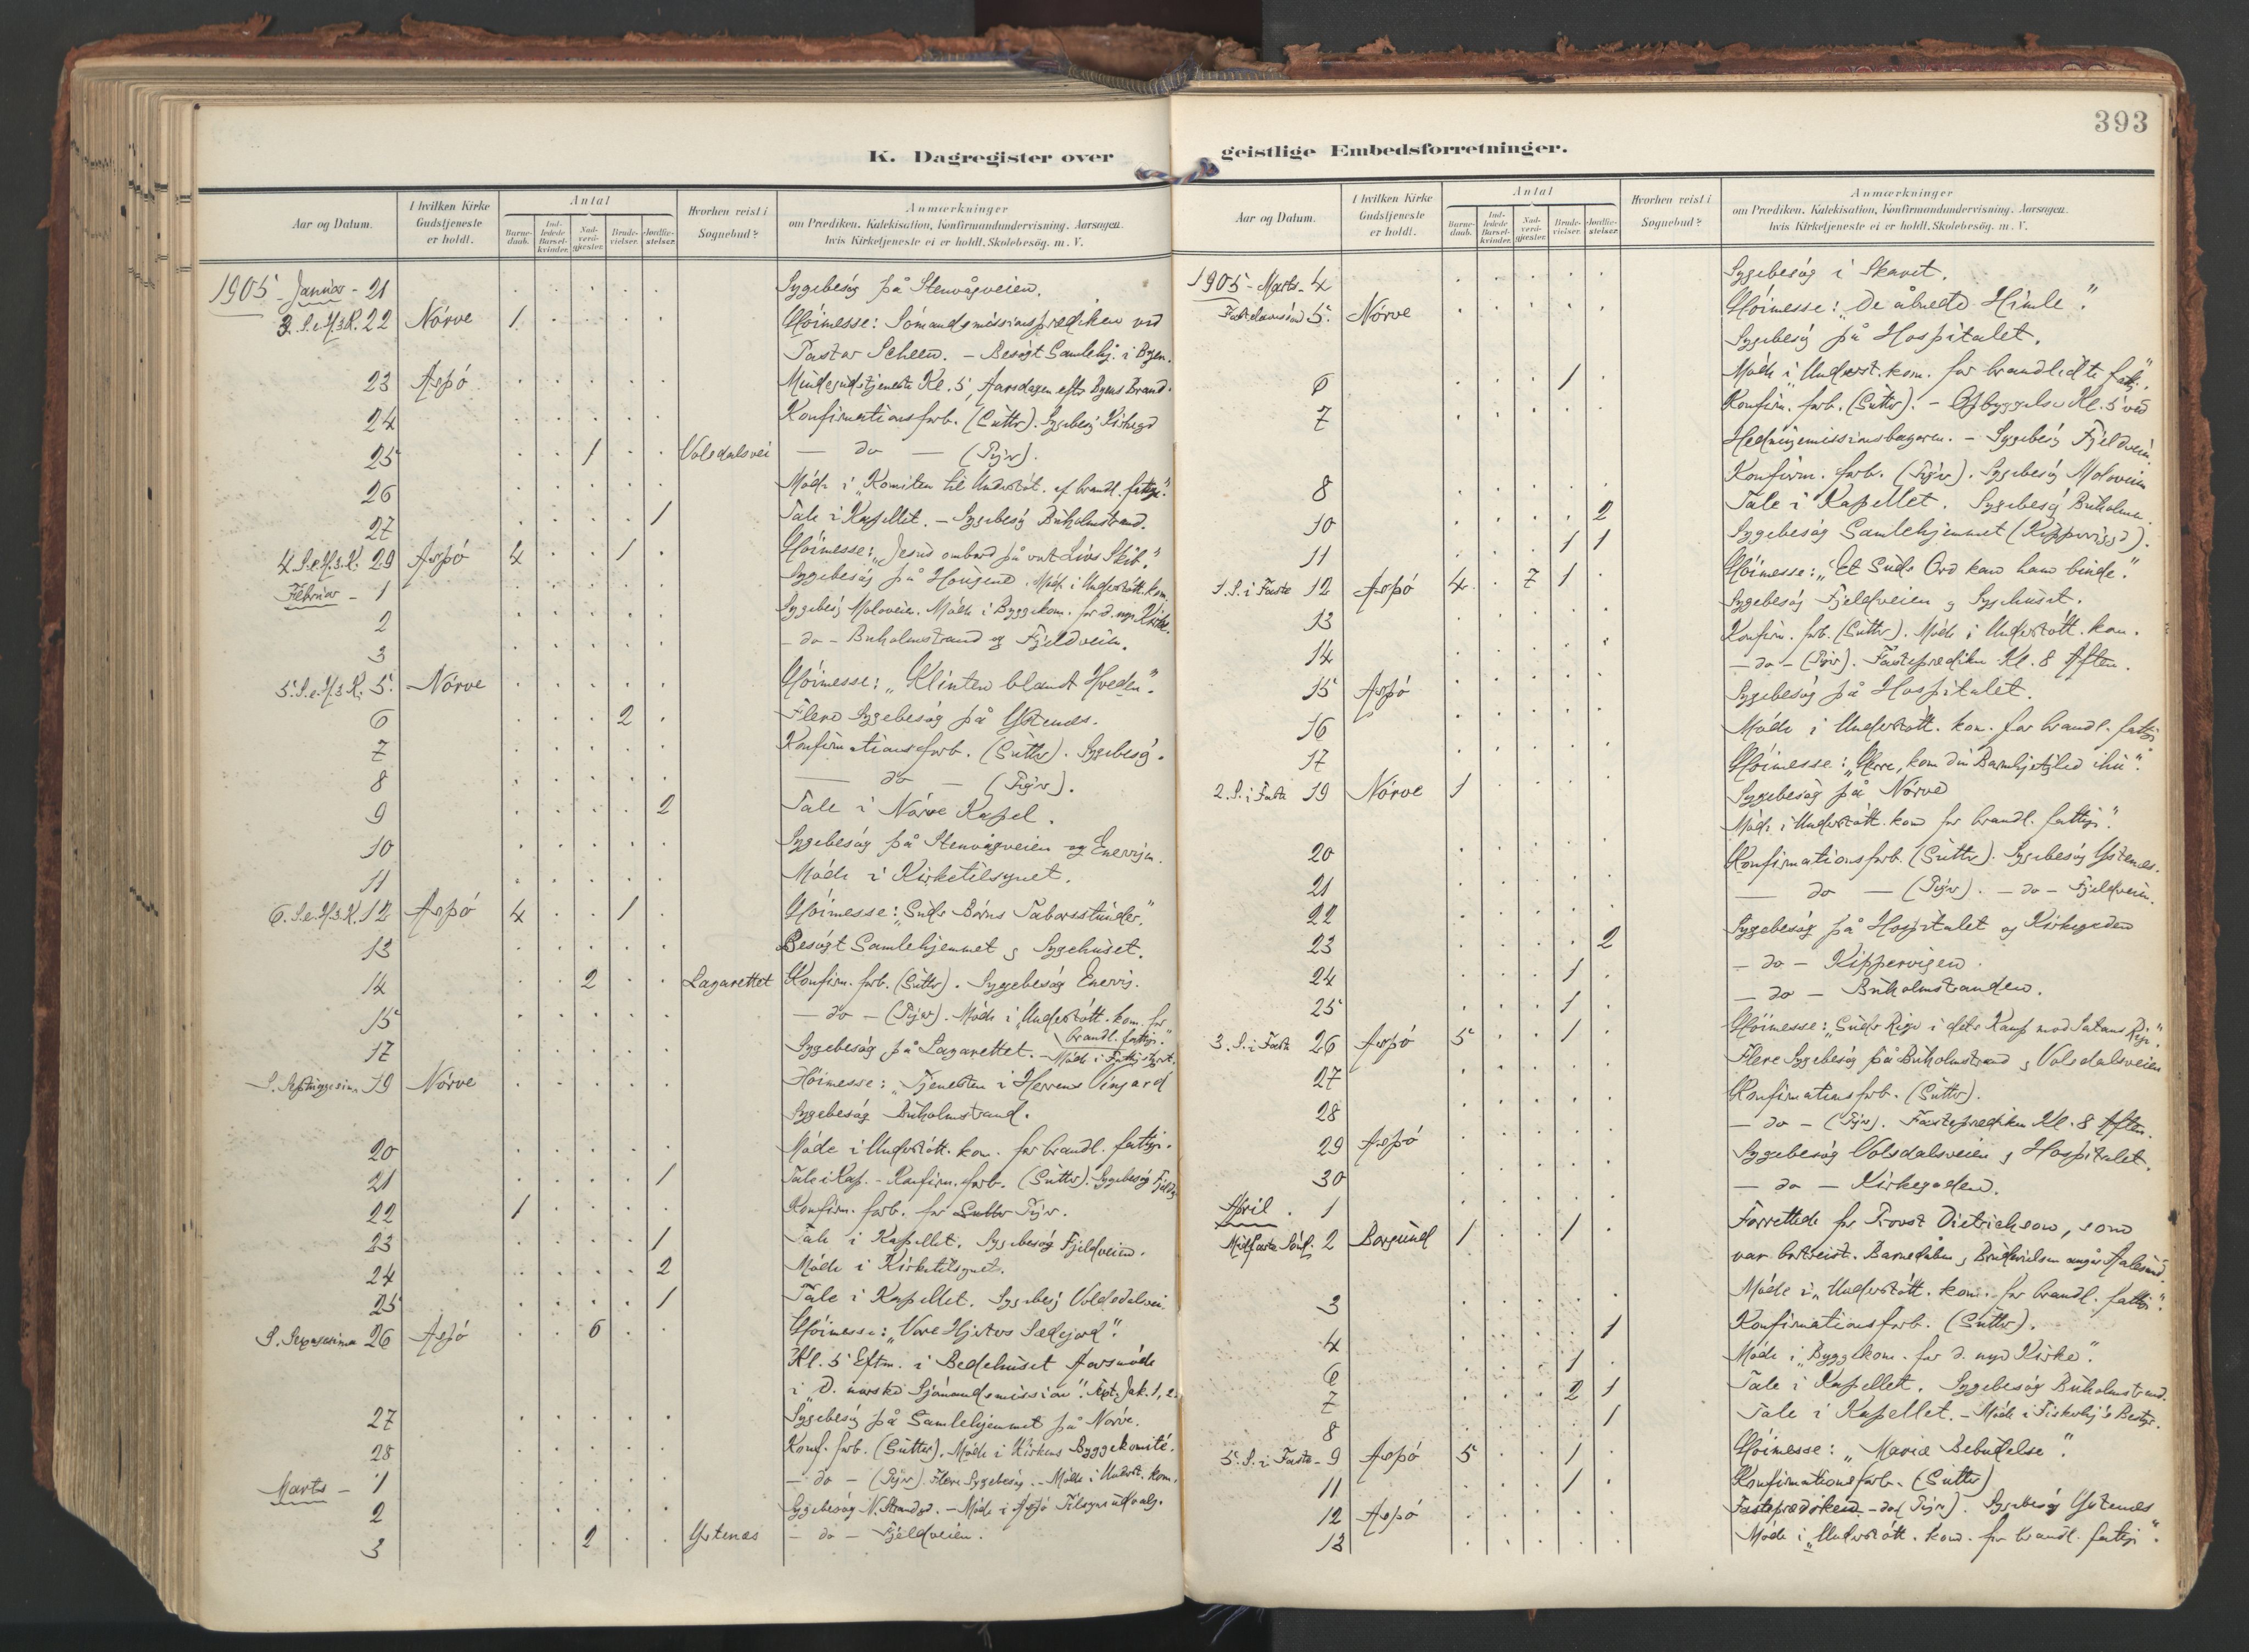 393
K. Dagregister over geistlige Embedsforretninger.
Aar og Datum. I hvilken Kirke Gudstjeneste er holdt. Antal Barnedaab. Indledede Barselkvinder. Nadverdgjester. Brudevielser. Jordfæstelser. Hvorhen reist i Sognebud? Anmærkninger om Prædiken, Katekisation, Konfirmandundervisning. Aarsagen, hvis Kirketjeneste ei er holdt. Skolebesøg. m. V.
1905 - Januar - 21 Sygebesøg på Stenvågveien.
3. S. e. H.3.K. 22 Nørve 1 Høimesse: Sømandsmissionsprædiken ved
Pastor Scheen. - Besøgt Samlehj. i Byen.
23 Aspø Mindegudstjeneste Kl. 5, Aarsdagen efter Byens Brand.
24 Konfirmationsforb. (Gutter). Sygebesøg Kirkegd
25 1 Volsdalsvei — do — (Piger).
26 Møde i "Komiteen til Understøt. af brandl. fattige".
27 1 Tale i Kapellet. - Sygebesøg Buholmstrand.
4. S. e. H.3.K. 29 Aspø 4 1 Høimesse: "Jesus ombord på vort Livs Skib."
Februar - 1 Sygebesøg på Haugend. Møde i Understøtt. kom.
2 Sygebesøg Moloveien. Møde i Byggekom. for d. nye Kirke.
3 - do - Buholmstrand og Fjeldveien.
5. S. e. H.3.K. 5. Nørve Høimesse: "Klinten blandt Hveden".
6 2 Flere Sygebesøg på Ystenes.
7 Konfirmationsforb. (Gutter). Sygebesøg.
8 — do — (Piger).
9 2 Tale i Nørve Kapel.
10 Sygebesøg på Stenvågveien og Enerhjen.
11 Møde i Kirketilsynet.
6. S. e. H.3.K. 12 Aspø 4 1 Høimesse: "Guds Børns Taborsstunder."
13 Besøgt Samlehjemmet g Sygehuset.
14 2 Lazarettet Konfirm. forb. (Gutter). Sygebesøg
15 — do — (Piger). Møde i "Understøtt. kom. for
brandl. fattige."
17 Sygebesøg på Lazarettet. - Møde i Fattigstyret.
S. Septuagesima 19 Nørve Høimesse: "Tjenesten i Herrens Vingård
Sygebesøg Buholmstrand.
20 Møde i Understøtt. kom. for brandl. fattige.
21 1 Tale i Kap. - Konfirm. forb. (Gutter). Sygebesøg Fjeldv
22 1 Konfirm. forb. for Gutter Piger.
23 1 Tale i Kapellet. Sygebesøg Fjeldveien.
24 2 Møde i Kirketilsynet.
25 1 Tale i Kapellet. Sygebesøg Volsdalsvei.
S. Sexagesima 26 Aspø 6 Høimesse: "Vore Hjerters Sædejord".
Kl. 5 Eftm. i Bedehuset Aarsmøde
i "D. norske Sjømandsmission". Text: Jak. 1, 2
27 Sygebesøg på Samlehjemmet på Nørve.
28 Konf. forb. (Gutter). Møde i Kirkens Byggekomité.
Marts - 1 — do — (Piger). Flere Sygebesøg. - Møde i Underst. kom.
2 Sygebesøg N. Strandgd. - Møde i Aspø Tilsynsudvalg.
3 2 Ystenæs — do — Fjeldveien.
1905 - Marts - 4 Sygebesøg i Skarvt.
Fastelavnssønd 5. Nørve Høimesse: "De åbnede Himle".
Sygebesøg på Hospitalet.
6 1 Møde i "Underst. kom. for brandlidte fatt."
7 Konfirm. forb. (Gutter). - Opbyggelse Kl. 5 ved
Hedningemissionsbazaren. - Sygebesøg Fjeldveien.
8 Konfirm. forb. (Piger). Sygebesøg Moloveien
10 2 Tale i Kapellet. Sygebesøg Buholmen.
11 1 1 Sygebesøg Samlehjemmet (Kipperviggd).
1. S. i Faste 12 Aspø 4 7 1 Høimesse: "Et Guds Ord kan ham binde."
13 Sygebesøg Fjeldveien g Sygehuset.
14 Konfirm. forb. (Gutter). Møde i Understøtt. kom.
15 Aspø — do — (Piger). Fasteprædiken Kl. 8 Aften.
16 Sygebesøg på Hospitalet.
17 Møde i Understøtt. kom. for brandl. fattige
2. S. i Faste 19 Nørve 1 Høimesse: "Herre, kom din Barmhjertighed ihu".
Sygebesøg på Nørve
20 Møde i "Understøtt. kom for brandl. fattige".
21 Konfirmationsforb. (Gutter). Sygebesøg Ystenes.
22 — do — (Piger). — do — Fjeldveien.
23 2 Sygebesøg på Hospitalet og Kirkegaden
24 1 — do — Kippervigen.
25 1 — do — Buholmstranden.
3. S. i Faste 26 Aspø 5 1 Høimesse: "Guds Rige i dets Kamp mod Satans Rige".
27 Flere Sygebesøg på Buholmstrand g Volsdalsveien
28 Konfirmationsforb. (Gutter).
29 Aspø — do — (Piger). Fasteprædiken Kl. 8 Aften.
30 Sygebesøg Volsdalsveien g Hospitalet.
April. 1 — do — Kirkegaden.
Midfaste Sønd. 2 Borgund 1 1 Forrettede for Provst Dietrichson, som
var bortreist. Barnedåben g Brudevielsen angår Aalesund.
3 Møde i "Understøtt. kom. for brandl. fattige".
4 1 Konfirmationsforb. (Gutter).
6 1 Møde i "Byggekom. for d. nye Kirke".
7 2 1 Tale i Kapellet. Sygebesøg Buholmstrand.
8 1 Tale i Kapellet. - Møde i Fiskerhj's Bestyr.
5. S. i Faste - 9 Aspø 5 1 Høimesse: "Mariæ Bebudelse".
11 1 Konfirmationsforb. (Gutter)
12 Aspø Fasteprædiken - do (Piger). Sygebesøg Ystenes
13 Møde i "Understøtt. kom. for brandl. fattige".